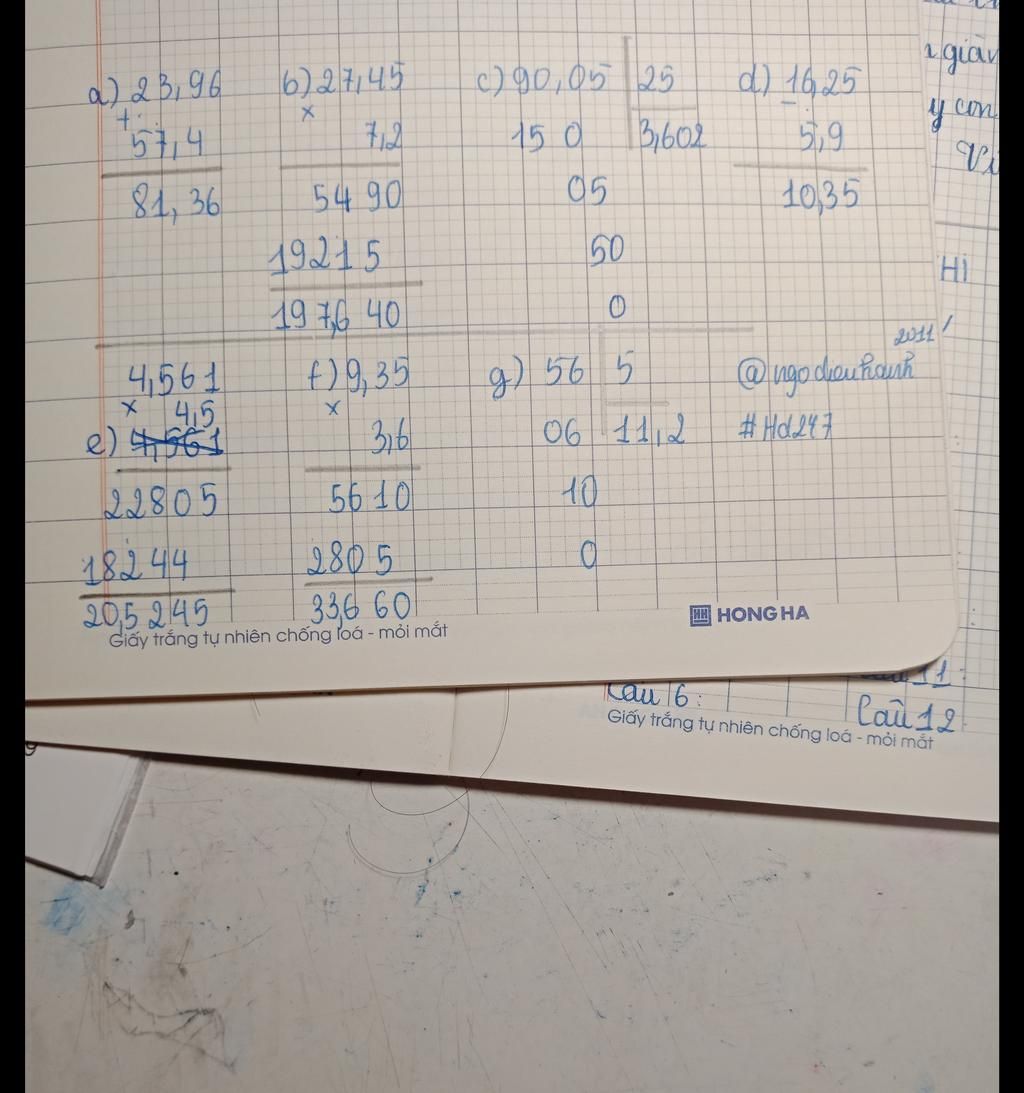 a) 23,96 b) 27,45 c) 90,05 25 d) 16,25
+ × -
57,4 7,2 15 0 3,602 5,9
81,36 54 90 05 10,35
19215 50
197,6 40 0
2011
4,561 f) 9,35 g) 56 5 @ngodieuhanh
× 4,5 ×
e) 3,6 06 11,2 #Hd247
22805 56 10 10
18244 2805 0
20,5245 33,6 60
Giấy trắng tự nhiên chống loá - mỏi mắt
HH HONG HA
y con
Vi
Hi
Câu 6: 11:
Câu 12
Giấy trắng tự nhiên chống loá - mỏi mắt